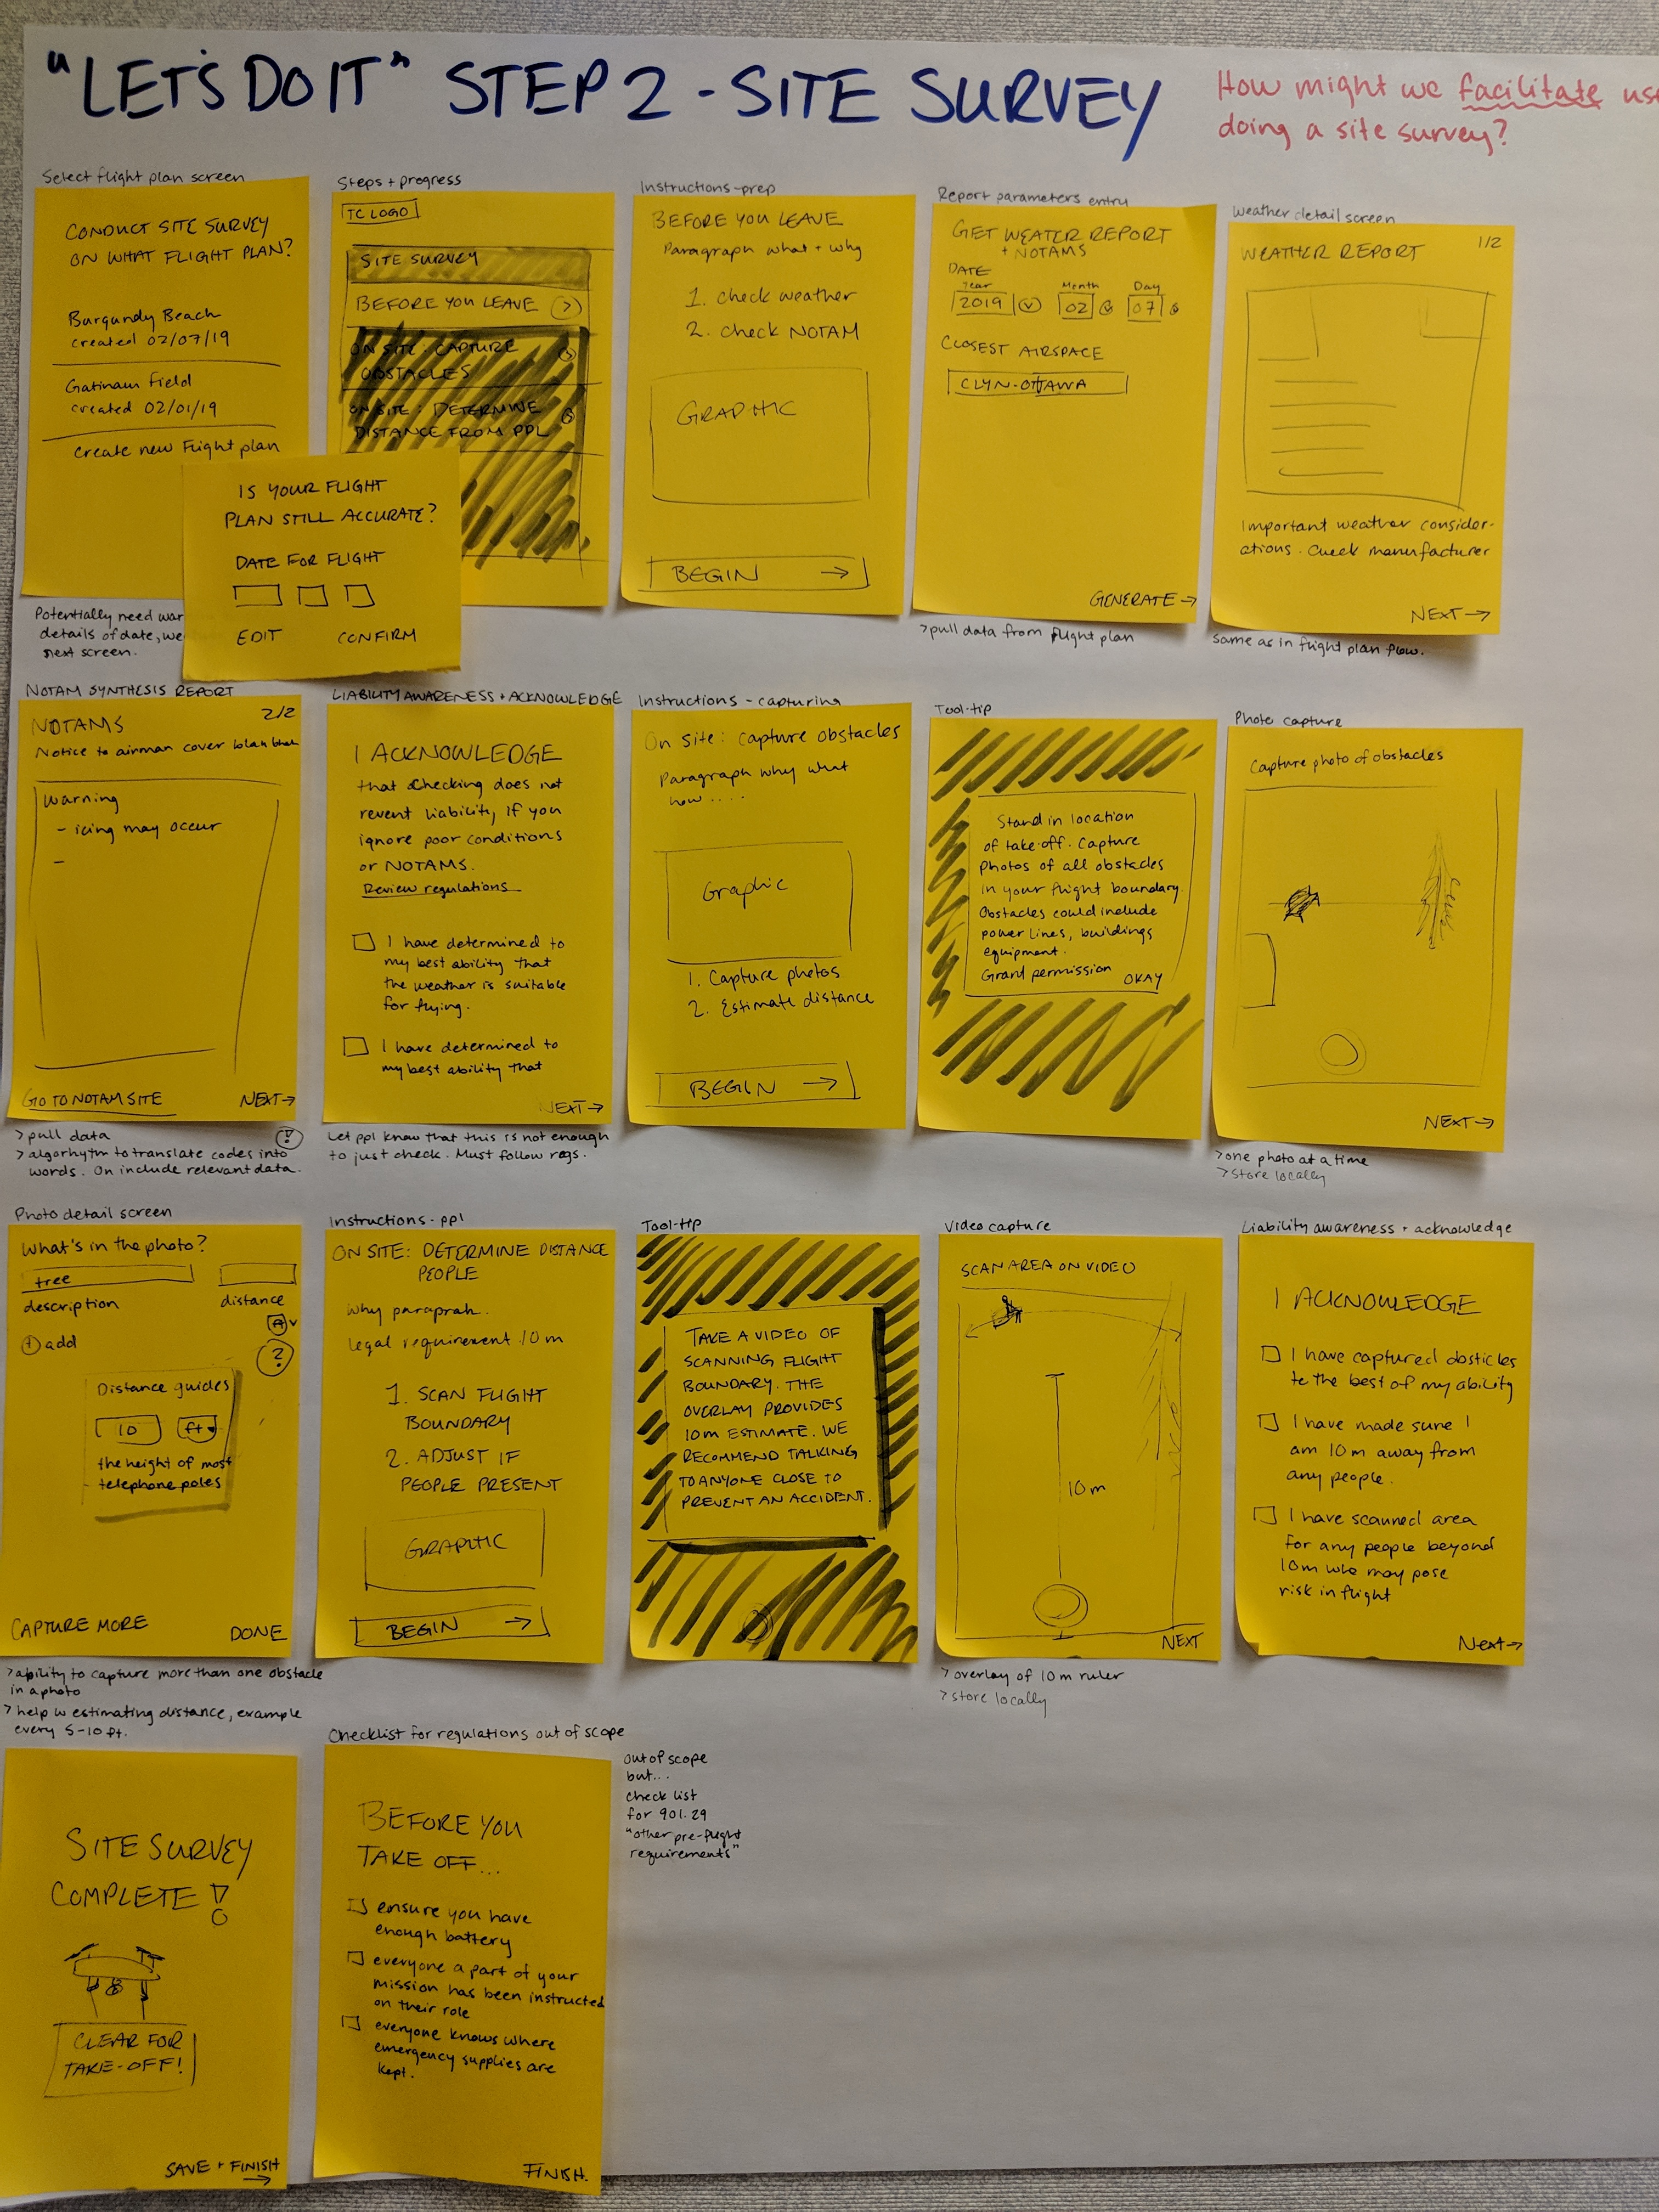 "LET'S DO IT" STEP 2 - SITE SURVEY
How might we facilitate
doing a site survey?
Select flight plan screen
CONDUCT SITE SURVEY
ON WHAT FLIGHT PLAN?
Burgundy Beach
created 02/07/19
Gatineau Field
created 02/01/19
create new Flight plan
IS YOUR FLIGHT
PLAN STILL ACCURATE?
DATE FOR FLIGHT
EDIT CONFIRM
Potentially need
details of date,
next screen.
Steps + progress
TC LOGO
SITE SURVEY
BEFORE YOU LEAVE >
ON SITE: CAPTURE
OBSTACLES
ON SITE: DETERMINE
DISTANCE FROM PPL
Instructions-prep
BEFORE YOU LEAVE
Paragraph what + why
1. check weather
2. check NOTAM
GRAPHIC
BEGIN →
Report parameters entry
GET WEATER REPORT
+ NOTAMS
DATE
Year Month Day
2019 02 07
CLOSEST AIRSPACE
CLYN-OTTAWA
GENERATE →
>pull data from flight plan
Weather detail screen
1/2
WEATHER REPORT
Important weather consider-
ations. Check manufacturer
NEXT →
Same as in flight plan flow.
NOTAM SYNTHESIS REPORT
2/2
NOTAMS
Notice to airman cover blah blah
Warning
- icing may occur
-
GO TO NOTAM SITE NEXT →
> pull data
> algorhytm to translate codes into
words. On include relevant data.
!
LIABILITY AWARENESS + ACKNOWLEDGE
I ACKNOWLEDGE
that checking does not
revent liability, if you
ignore poor conditions
or NOTAMS.
Review regulations
I have determined to
my best ability that
the weather is suitable
for flying.
I have determined to
my best ability that
NEXT →
Let ppl know that this is not enough
to just check. Must follow regs.
Instructions - capturing
On site: capture obstacles
Paragraph why what
how....
Graphic
1. Capture photos
2. Estimate distance
BEGIN →
Tool-tip
Stand in location
of take-off. Capture
Photos of all obstacles
in your flight boundary.
Obstacles could include
power lines, buildings
equipment.
Grant permission OKAY
Photo capture
Capture photo of obstacles
NEXT →
>one photo at a time
>Store locally
Photo detail screen
What's in the photo?
tree
description distance
+ add
?
Distance guides
10 ft
the height of most
telephone poles
CAPTURE MORE DONE
>ability to capture more than one obstacle
in a photo
>help w estimating distance, example
every 5-10 ft.
Instructions - ppl
ON SITE: DETERMINE DISTANCE
PEOPLE
Why paraprah.
legal requirement 10m
1. SCAN FLIGHT
BOUNDARY
2. ADJUST IF
PEOPLE PRESENT
GRAPHIC
BEGIN →
Tool-tip
TAKE A VIDEO OF
SCANNING FLIGHT
BOUNDARY. THE
OVERLAY PROVIDES
10m ESTIMATE. WE
RECOMMEND TALKING
TO ANYONE CLOSE TO
PREVENT AN ACCIDENT.
Video capture
SCAN AREA ON VIDEO
10m
NEXT
> overlay of 10m ruler
> store locally
Liability awareness + acknowledge
I ACKNOWLEDGE
I have captured obsticles
to the best of my ability
I have made sure I
am 10m away from
any people.
I have scanned area
for any people beyond
10m who may pose
risk in flight
Next →
SITE SURVEY
COMPLETE!
CLEAR FOR
TAKE-OFF!
SAVE + FINISH →
Checklist for regulations out of scope
BEFORE YOU
TAKE OFF...
ensure you have
enough battery
everyone a part of your
mission has been instructed
on their role
everyone knows where
emergency supplies are
kept.
FINISH.
out of scope
but...
check list
for 901.29
"other pre-flight
requirements"